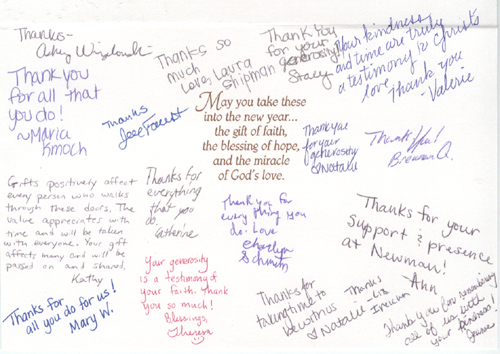 Thanks-
Thanks so
much
Love, Laura
Shipman
Thank You
for your
generosity
Stacy
Your kindness
and time are truly
a testimony to Christ's
love.
Thank you
- Valerie
Thank you
for all that
you do!
~Maria
Kmoch
Thanks
May you take these
into the new year...
the gift of faith,
the blessing of hope,
and the miracle
of God's love.
Thank you
for your
generosity
Natalie
Thank You!
Brennan O.
Gifts positively affect
every person who walks
through these doors. The
value appreciates with
time and will be taken
with everyone. Your gift
affects many and will be
passed on and shared.
Kathy
Thanks for
everything
that you
do.
Catherine
Thank you for
everything you
do. Love
Schmitt
Thanks for your
support & presence
at Newman!
Ann
Your generosity
is a testimony of
your faith. Thank
you so much!
Blessings,
Theresa
Thanks for
all you do for us!
Mary W.
Thanks for
taking time to
be with us
Natalie
Thanks
-Liz
Thank you for remembering
all of us with
your kindness!